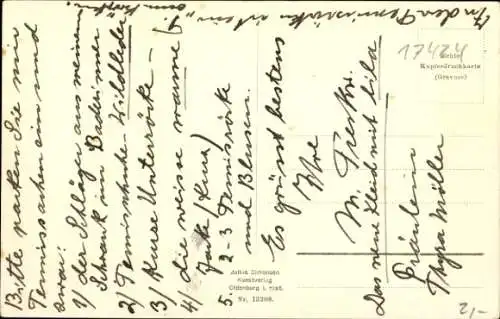 Bitte packen Sie mir
Tennissachen ein und
zwar:
1) der Schläger aus meinem
Schrank im Badezimmer
2) Tennisschuhe - Wildleder
3) Kurze Unterröcke -
4) die weisse warme
Jacke (kurz)
5. 2-3 Tennisröcke
und Blusen.
Es grüsst bestens
Ihre
M.
Das neue Kleid mit lila
In den Tennisschuhen
Fräulein
Thyra Möller
17424
Echte
Kupferdruckkarte
(Gravure)
Julius Simonsen
Kunstverlag
Oldenburg i. Holst.
Nr. 12209.
-12